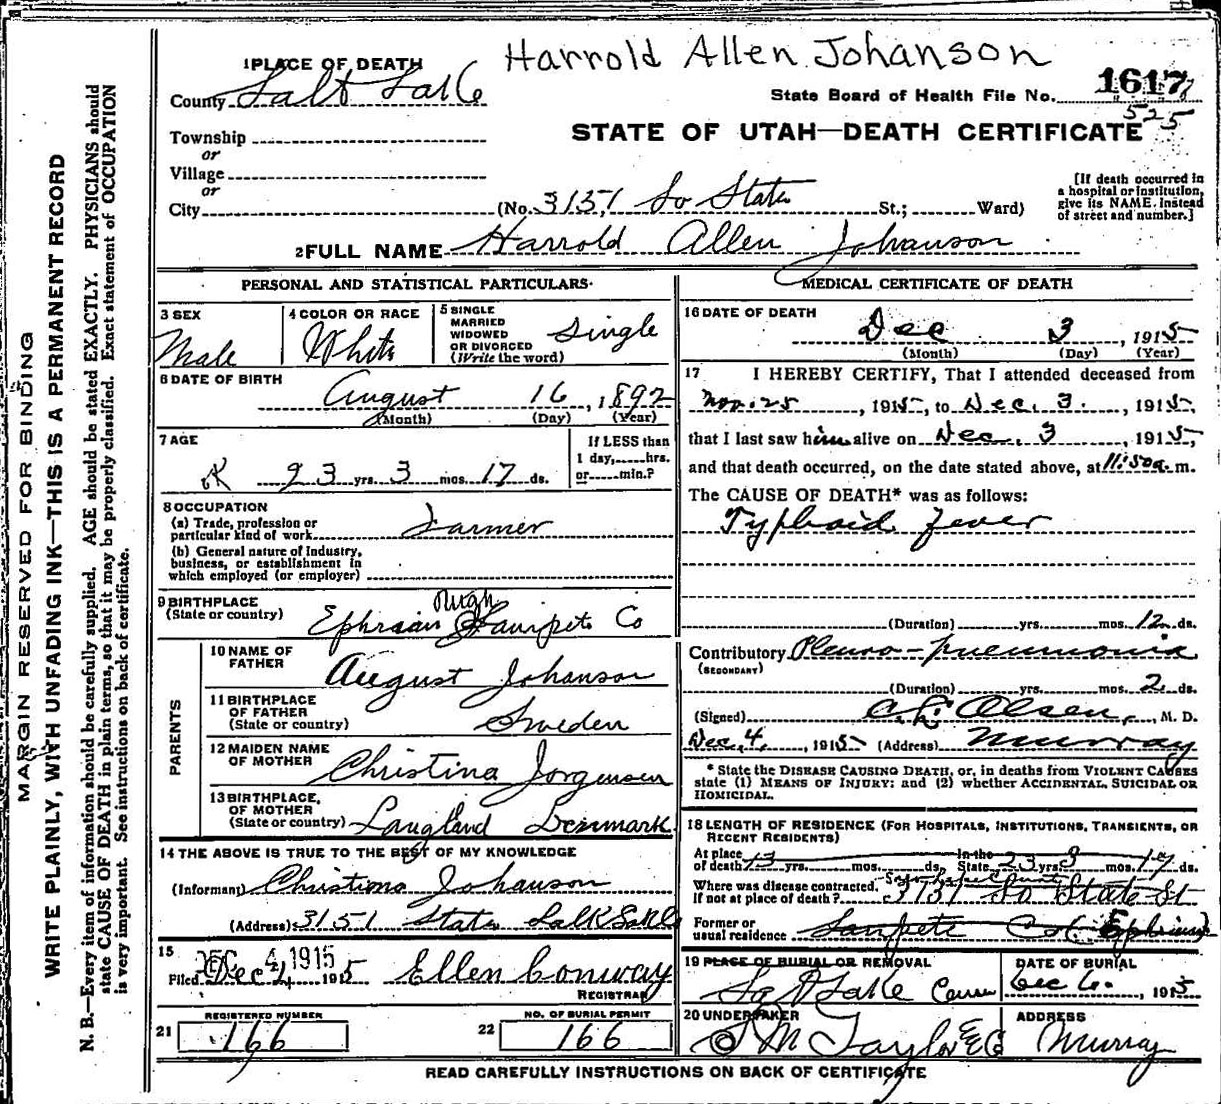 Harrold Allen Johanson
1 PLACE OF DEATH
County Salt Lake
State Board of Health File No. 1617
525
STATE OF UTAH—DEATH CERTIFICATE
Township
or
Village
or
City (No. 3151 So State St.; Ward)
[If death occurred in
a hospital or institution,
give its NAME. instead
of street and number.]
2 FULL NAME Harrold Allen Johanson
PERSONAL AND STATISTICAL PARTICULARS
3 SEX
Male
4 COLOR OR RACE
White
5 SINGLE
MARRIED
WIDOWED
OR DIVORCED
(Write the word)
Single
6 DATE OF BIRTH
August 16, 1892
(Month) (Day) (Year)
7 AGE
23 yrs. 3 mos. 17 ds.
If LESS than
1 day,.....hrs.
or.....min.?
8 OCCUPATION
(a) Trade, profession or
particular kind of work Farmer
(b) General nature of Industry,
business, or establishment in
which employed (or employer)
9 BIRTHPLACE
(State or country) Ephraim Sanpete Co
PARENTS
10 NAME OF
FATHER August Johanson
11 BIRTHPLACE
OF FATHER
(State or country) Sweden
12 MAIDEN NAME
OF MOTHER Christina Jorgensen
13 BIRTHPLACE,
OF MOTHER
(State or country) Langland Denmark
14 THE ABOVE IS TRUE TO THE BEST OF MY KNOWLEDGE
(Informant) Christina Johanson
(Address) 3151 State Salt Lake
15
DEC 4 1915
Filed Dec 4, 1915 Ellen Conway
REGISTRAR
21 REGISTERED NUMBER
166
22 NO. OF BURIAL PERMIT
166
MEDICAL CERTIFICATE OF DEATH
16 DATE OF DEATH
Dec 3, 1915
(Month) (Day) (Year)
17 I HEREBY CERTIFY, That I attended deceased from
Nov. 25, 1915, to Dec. 3., 1915,
that I last saw him alive on Dec. 3, 1915,
and that death occurred, on the date stated above, at 11:50 a. m.
The CAUSE OF DEATH* was as follows:
Typhoid Fever
(Duration) yrs. mos. 12 ds.
Contributory Pleuro-pneumonia
(SECONDARY)
(Duration) yrs. mos. 2 ds.
(Signed) Olsen, M. D.
Dec. 4, 1915 (Address) Murray
* State the DISEASE CAUSING DEATH, or, in deaths from VIOLENT CAUSES
state (1) MEANS OF INJURY: and (2) whether ACCIDENTAL, SUICIDAL OR
HOMICIDAL.
18 LENGTH OF RESIDENCE (FOR HOSPITALS, INSTITUTIONS, TRANSIENTS, OR
RECENT RESIDENTS)
At place
of death 13 yrs. mos. ds. In the State 23 yrs. 3 mos. 17 ds.
Where was disease contracted.
If not at place of death? 3151 So State St
Former or
usual residence Sanpete Co (Ephriam)
19 PLACE OF BURIAL OR REMOVAL
Salt Lake
DATE OF BURIAL
Dec 6., 1915
20 UNDERTAKER
S M Taylor & Co
ADDRESS
Murray
READ CAREFULLY INSTRUCTIONS ON BACK OF CERTIFICATE
MARGIN RESERVED FOR BINDING
WRITE PLAINLY, WITH UNFADING INK—THIS IS A PERMANENT RECORD
N. B.—Every item of information should be carefully supplied. AGE should be stated EXACTLY. PHYSICIANS should
state CAUSE OF DEATH in plain terms, so that it may be properly classified. Exact statement of OCCUPATION
is very important. See instructions on back of certificate.